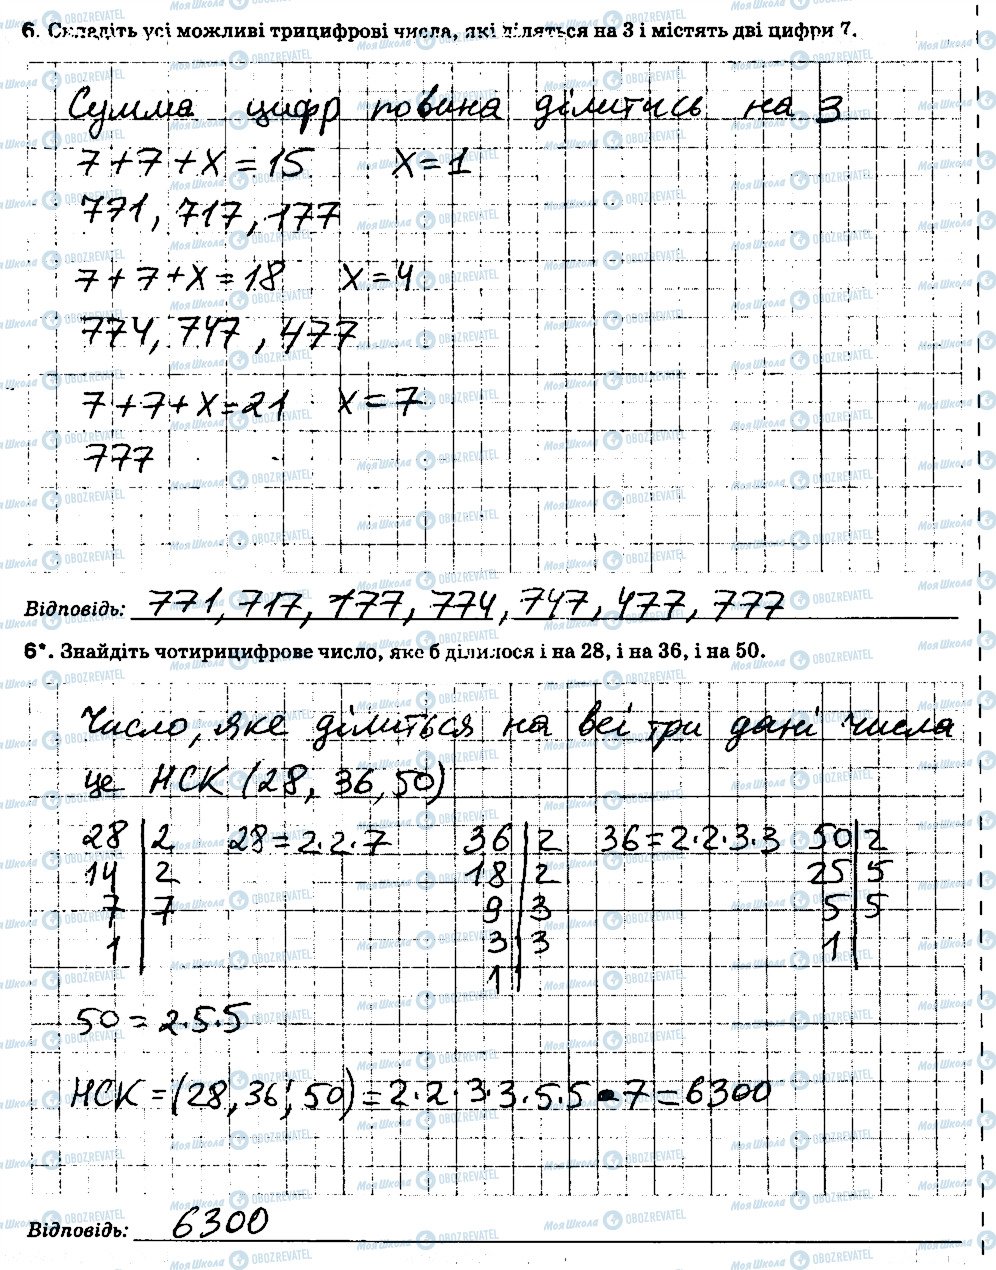 6. Складіть усі можливі трицифрові числа, які діляться на 3 і містять дві цифри 7.
Сумма цифр повина ділитись на 3
7+7+X=15 X=1
771, 717, 177
7+7+X=18 X=4
774, 747, 477
7+7+X=21 X=7
777
Відповідь: 771, 717, 177, 774, 747, 477, 777
6*. Знайдіть чотирицифрове число, яке б ділилося і на 28, і на 36, і на 50.
Число, яке ділиться на всі три дані числа
це НСК (28, 36, 50)
28 | 2 28=2·2·7 36 | 2 36=2·2·3·3 50 | 2
14 | 2 18 | 2 25 | 5
7 | 7 9 | 3 5 | 5
1 | 3 | 3 1 |
1 |
50=2·5·5
НСК=(28, 36, 50)=2·2·3·3·5·5·7=6300
Відповідь: 6300